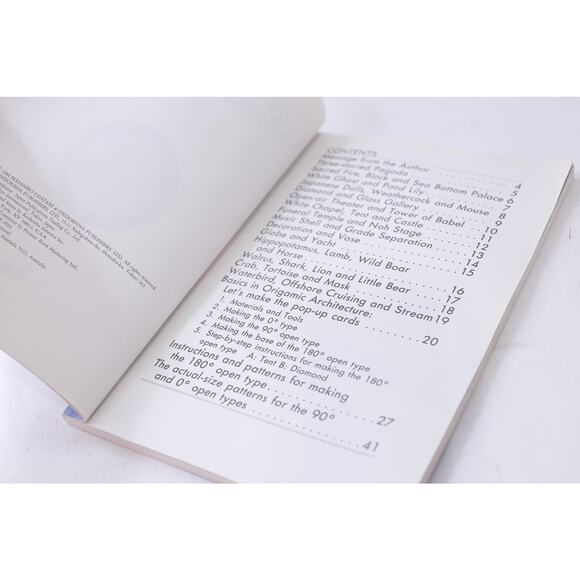 MASAHIRO CHATANI & ONDORISHA PUBLISHERS, LTD. All rights reserved.
ONDORISHA PUBLISHERS, LTD.
Tokyo 162
Australia
CONTENTS
Message from the Author . . . . . . . . . . . . 4
Three-storied Pagoda . . . . . . . . . . . . 5
Sacred Fire, Block and Sea Bottom Palace 6
White Ghost and Pond Lily . . . . . . . . 7
Japanese Dolls, Weathercock and Mouse 8
Diamond and Glass Gallery . . . . . . . . 9
Open-air Theater and Tower of Babel . 10
White Chapel, Tent and Castle . . . . . 11
Funeral Temple and Noh Stage . . . . . 12
Music, Shell and Grade Separation . . . 13
Decoration and Vase . . . . . . . . . . . 14
Globe and Yacht . . . . . . . . . . . . . 15
Hippopotamus, Lamb, Wild Boar
and Horse . . . . . . . . . . . . . . 16
Walrus, Shark, Lion and Little Bear . . 17
Crab, Tortoise and Mask . . . . . . . . 18
Waterbird, Offshore Cruising and Stream 19
Basics in Origamic Architecture:
Let's make the pop-up cards . . . . . . . 20
1. Materials and Tools
2. Making the 0° type
3. Making the 90° open type
4. Making the base of the 180° open type
5. Step-by-step instructions for making the 180°
open type A: Tent B: Diamond
Instructions and patterns for making
the 180° open type . . . . . . . . . . . . 27
The actual-size patterns for the 90°
and 0° open types . . . . . . . . . . . . 41